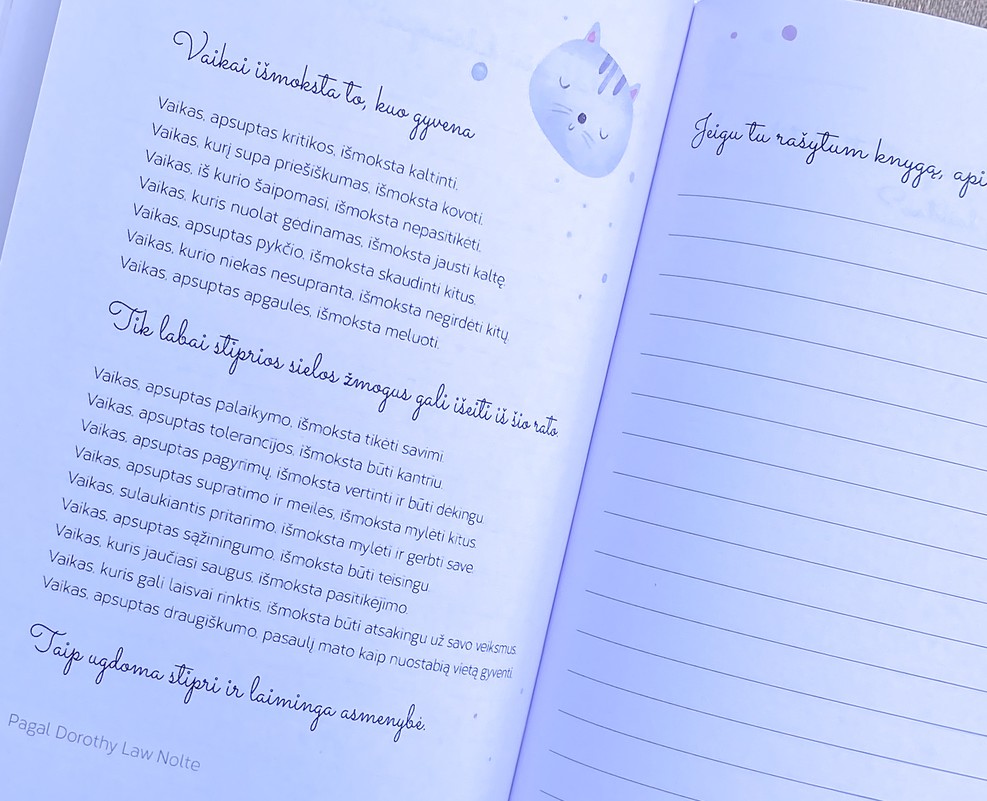 Vaikai išmoksta to, kuo gyvena
Vaikas, apsuptas kritikos, išmoksta kaltinti.
Vaikas, kurį supa priešiškumas, išmoksta kovoti.
Vaikas, iš kurio šaipomasi, išmoksta nepasitikėti.
Vaikas, kuris nuolat gėdinamas, išmoksta jausti kaltę.
Vaikas, apsuptas pykčio, išmoksta skaudinti kitus.
Vaikas, kurio niekas nesupranta, išmoksta negirdėti kitų.
Vaikas, apsuptas apgaulės, išmoksta meluoti.
Tik labai stiprios sielos žmogus gali išeiti iš šio rato.
Vaikas, apsuptas palaikymo, išmoksta tikėti savimi.
Vaikas, apsuptas tolerancijos, išmoksta būti kantriu.
Vaikas, apsuptas pagyrimų, išmoksta vertinti ir būti dėkingu.
Vaikas, apsuptas supratimo ir meilės, išmoksta mylėti kitus.
Vaikas, sulaukiantis pritarimo, išmoksta mylėti ir gerbti save.
Vaikas, apsuptas sąžiningumo, išmoksta būti teisingu.
Vaikas, kuris jaučiasi saugus, išmoksta pasitikėjimo.
Vaikas, kuris gali laisvai rinktis, išmoksta būti atsakingu už savo veiksmus.
Vaikas, apsuptas draugiškumo, pasaulį mato kaip nuostabią vietą gyventi.
Taip ugdoma stipri ir laiminga asmenybė.
Pagal Dorothy Law Nolte
Jeigu tu rašytum knygą, api